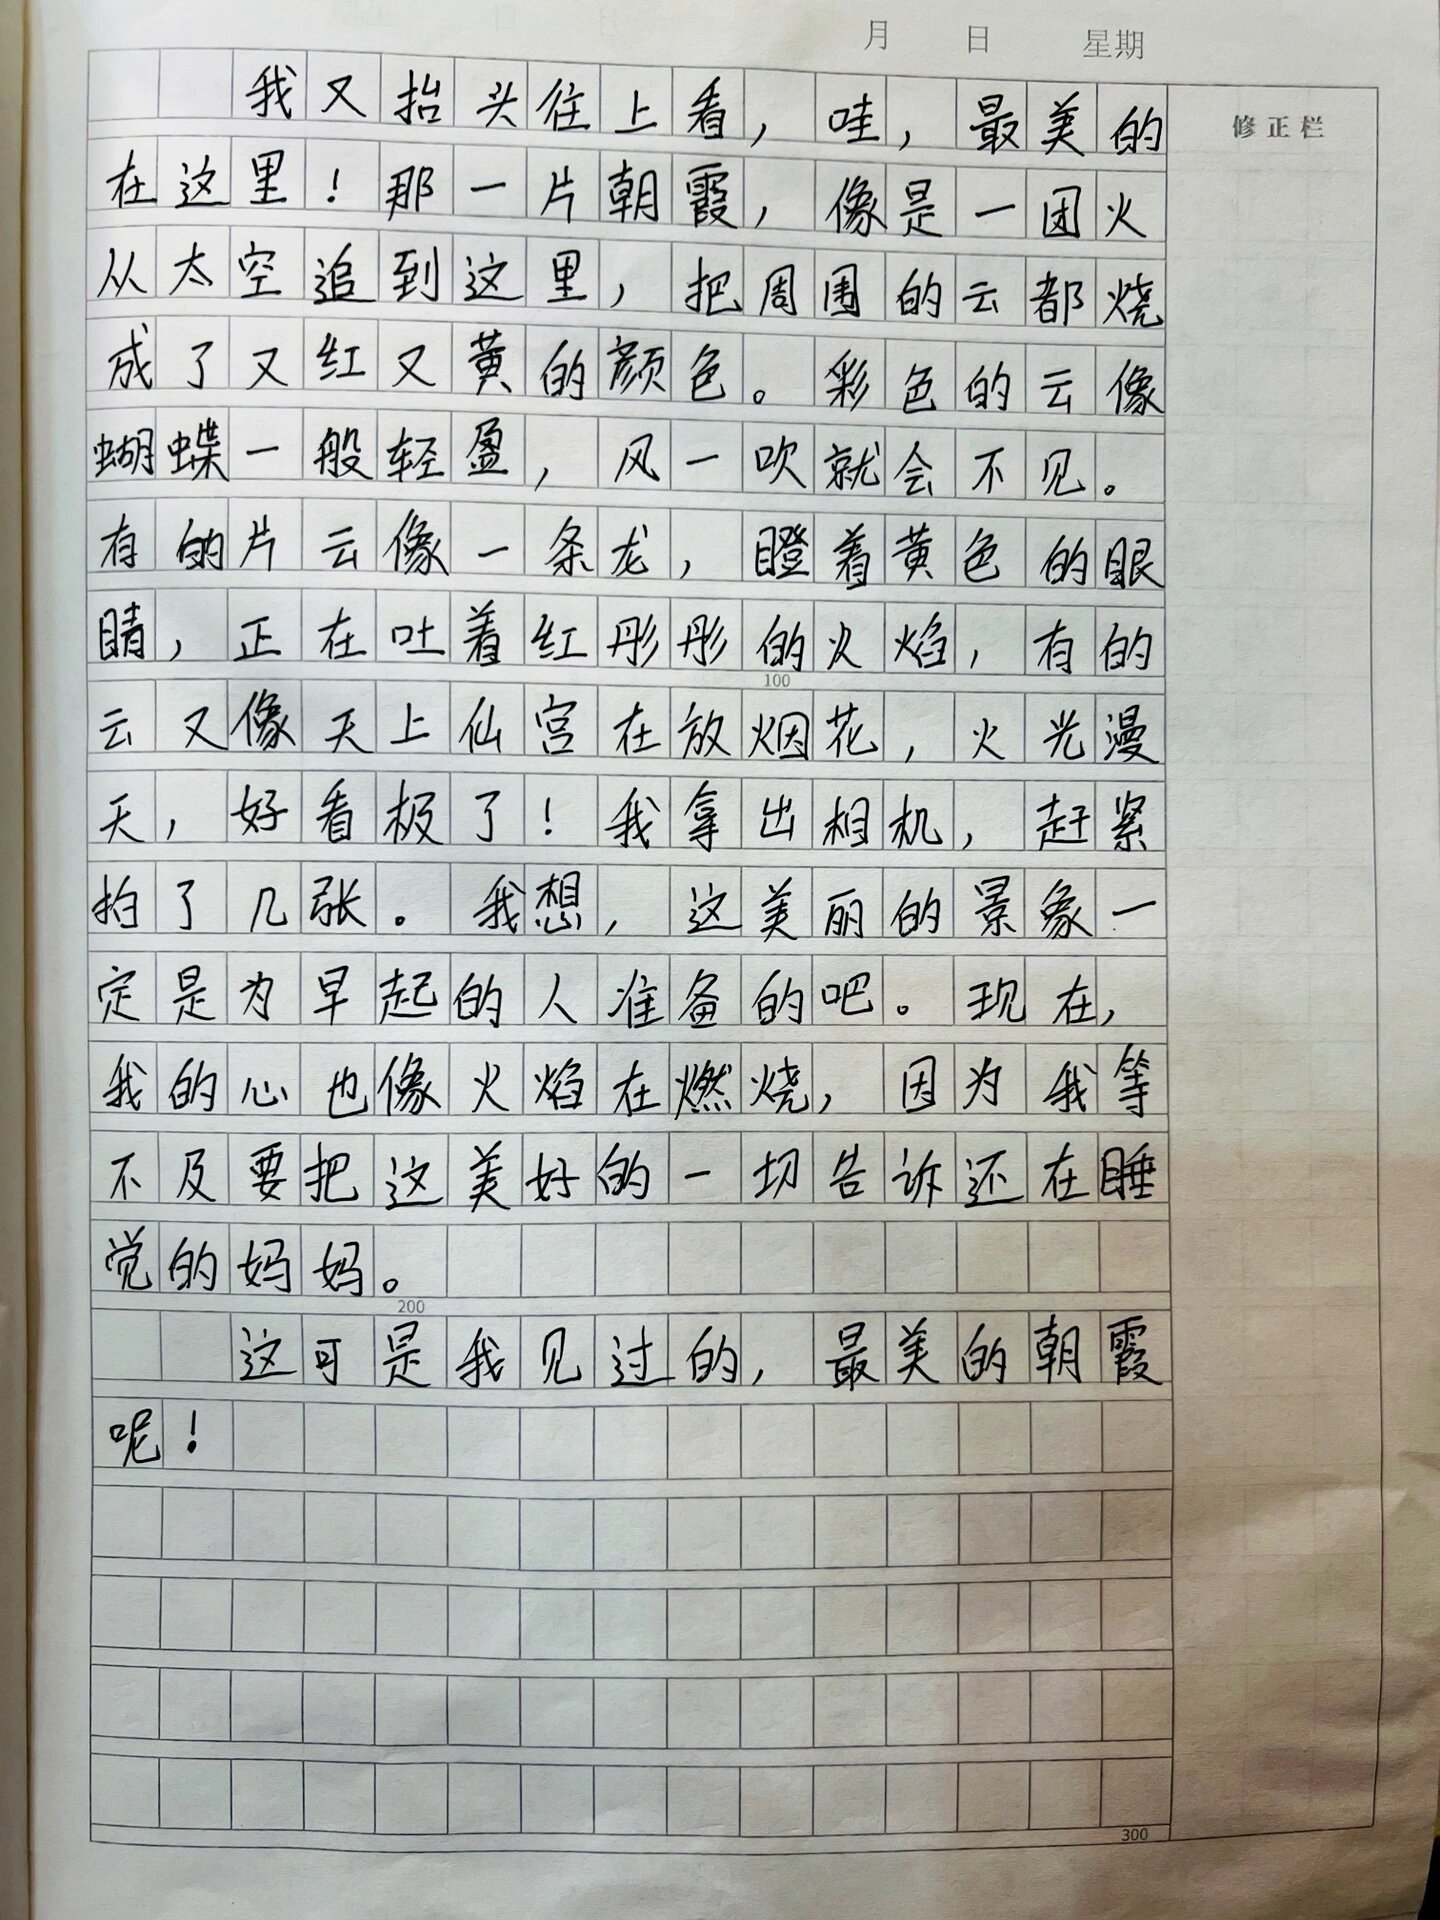 月 日 星期
修正栏
我又抬头往上看，哇，最美的
在这里！那一片朝霞，像是一团火
从太空追到这里，把周围的云都烧
成了又红又黄的颜色。彩色的云像
蝴蝶一般轻盈，风一吹就会不见。
有的片云像一条龙，瞪着黄色的眼
睛，正在吐着红彤彤的火焰，有的
100
云又像天上仙宫在放烟花，火光漫
天，好看极了！我拿出相机，赶紧
拍了几张。我想，这美丽的景象一
定是为早起的人准备的吧。现在，
我的心也像火焰在燃烧，因为我等
不及要把这美好的一切告诉还在睡
觉的妈妈。
200
这可是我见过的，最美的朝霞
呢！
300